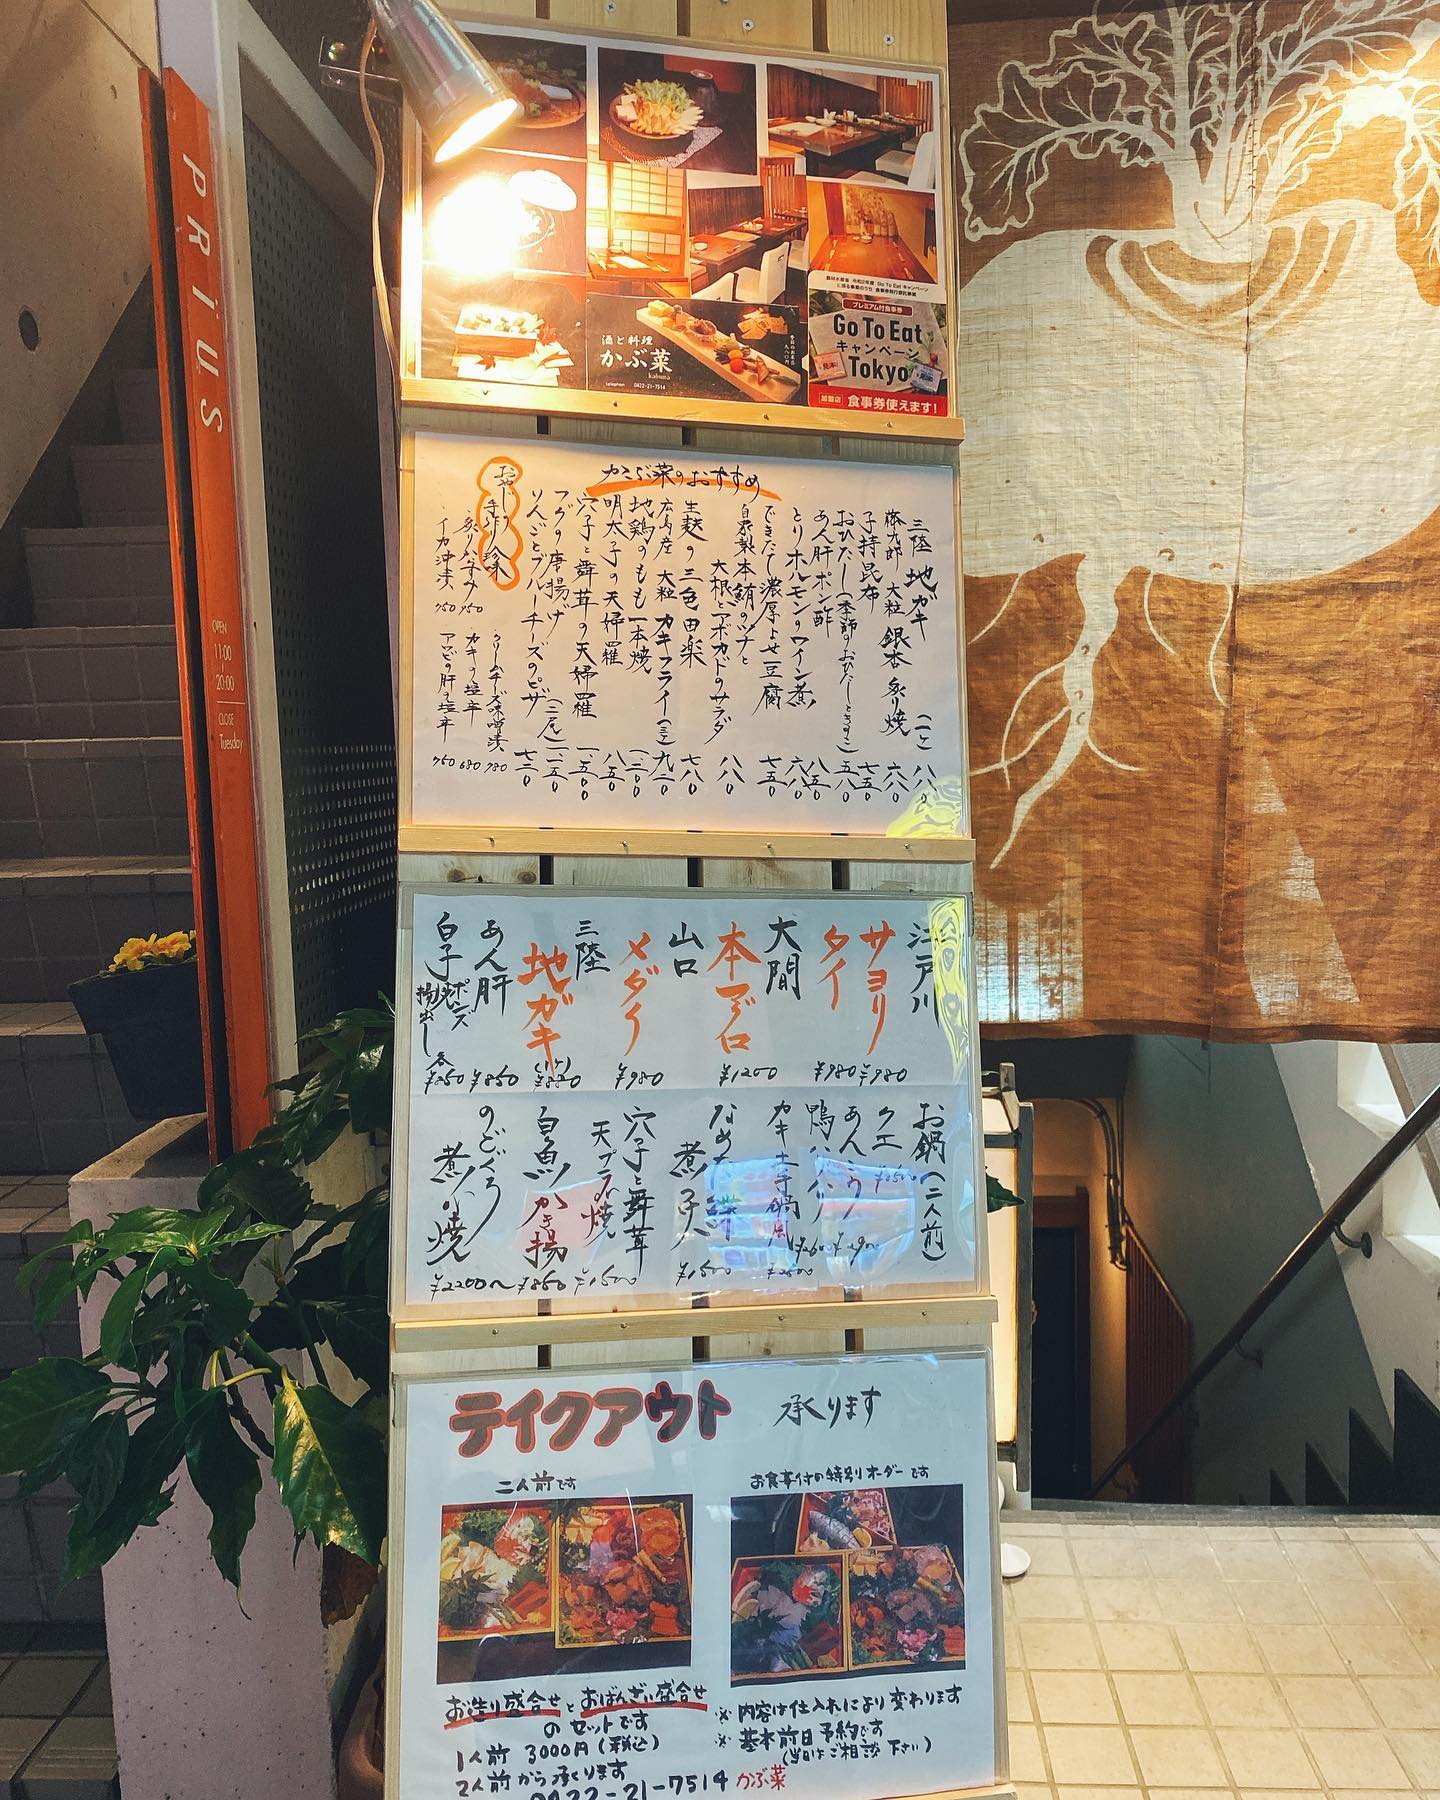 PRiUS
OPEN
11:00
20:00
CLOSE
Tuesday
農林水産省 令和2年度 Go To Eat キャンペーン
に係る事業のうち 食事券発行委託事業
プレミアム付食事券
Go To Eat
キャンペーン
Tokyo
加盟店 食事券使えます!
酒と料理
かぶ菜
kabuna
telephon 0422-21-7514
かぶ菜のおすすめ
三陸 地ガキ (一ヶ) 八八〇
藤九郎 大粒 銀杏 炙り焼 六八〇
子持昆布 七五〇
おひたし(季節のおひたしときすこ) 五八〇
あん肝ポン酢 八五〇
とりホルモンのワイン煮 六八〇
できたて濃厚よせ豆腐 七五〇
自家製本鮪のツナと
大根とアボカドのサラダ 八八〇
生麩の三色田楽 七八〇
広島産 大粒 カキフライ(三ヶ) 九二〇
地鶏のもも一本焼
明太子の天婦羅 八五〇
穴子と舞茸の天婦羅 一、五〇〇
フグの唐揚げ(二尾) 一、二五〇
りんごとブルーチーズのピザ 七三〇
おやじの手作り珍味
炙りバクダミ 750
イカ沖漬 750
クリームチーズ味噌漬 780
カキの塩辛 680
アワビの肝の塩辛 750
江戸川
サヨリ ¥980
タイ ¥980
大間
本マグロ ¥1200
山口
メダイ ¥980
三陸
地ガキ (1ヶ) ¥880
あん肝 ¥850
白子 ポンズ 焼 揚出し 各¥850
お鍋(二人前)
クエ
あんこう ¥2900
鴨ハリハリ ¥2600
カキ土手鍋風 ¥2500
なめた鰈
煮付 ¥1500
穴子と舞茸
天プラ 焼 ¥1500
白魚かき揚 ¥850
のどぐろ
煮 焼 ¥2200〜
テイクアウト 承ります
二人前です
お食事付の特別オーダーです
お造り盛合せとおばんざい盛合せ
のセットです
1人前 3000円(税込)
2人前から承ります
0422-21-7514 かぶ菜
※内容は仕入れにより変わります
※基本前日予約です
(当日はご相談下さい)